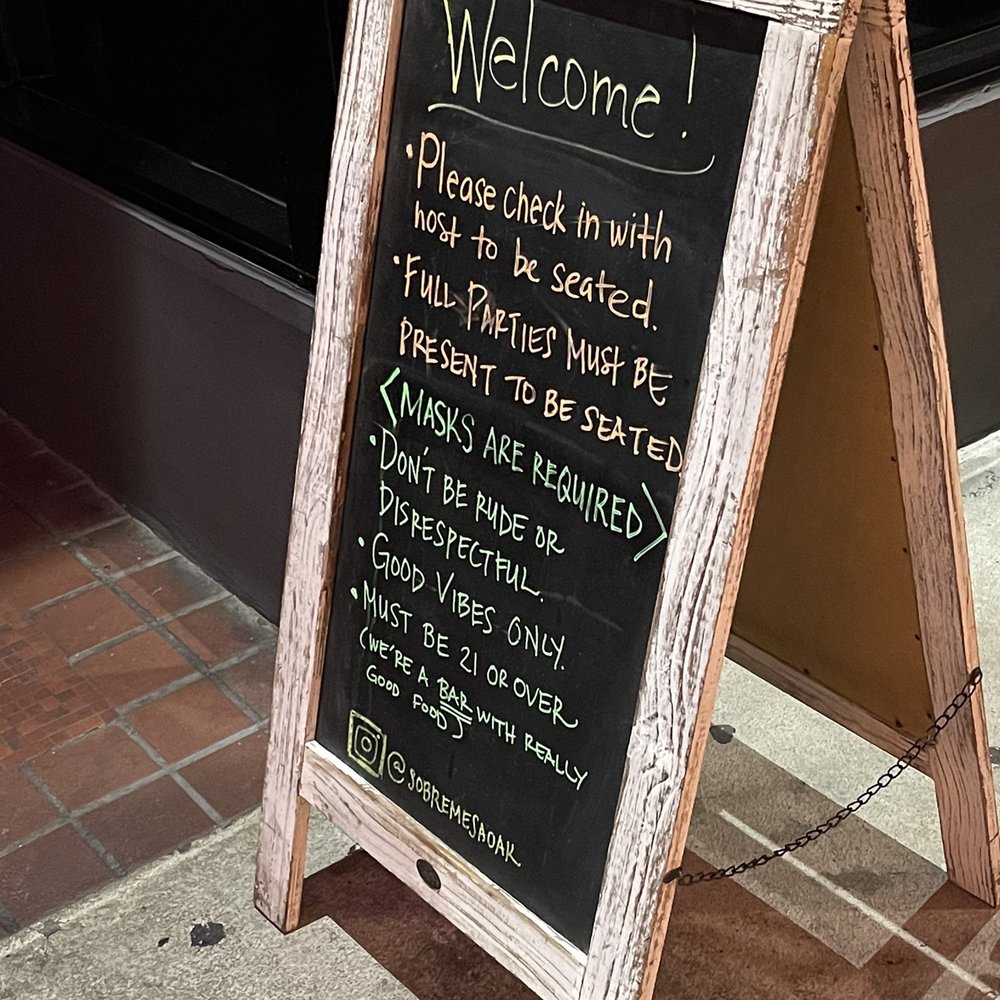 Welcome!
• Please check in with
host to be seated.
• FULL PARTIES MUST BE
PRESENT TO BE SEATED
<MASKS ARE REQUIRED>
• DON'T BE RUDE OR
DISRESPECTFUL.
• GOOD VIBES ONLY.
• MUST BE 21 OR OVER
(WE'RE A BAR WITH REALLY
GOOD FOOD)
@SOBREMESAOAK